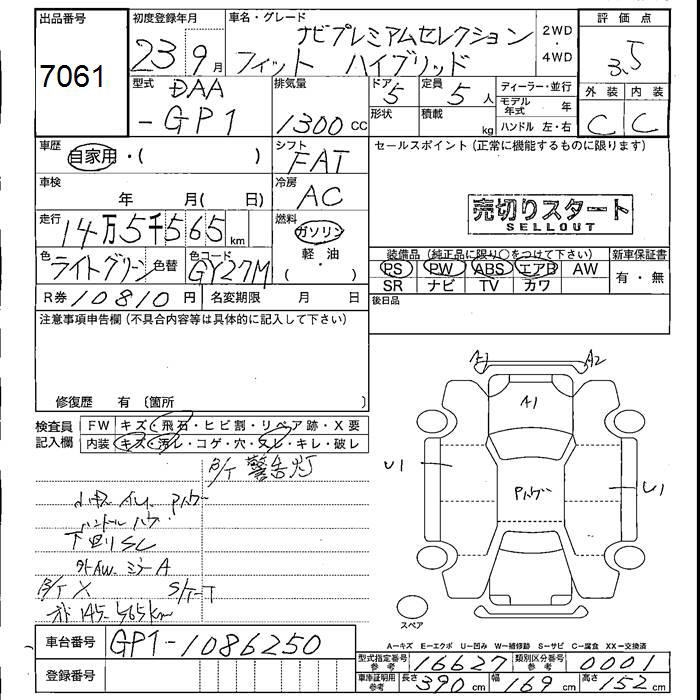 出品番号 7061
初度登録年月 23 9月
車名・グレード ナビプレミアムセレクション
フィット ハイブリッド
2WD・4WD
評価点 3.5
外装 内装
C C
型式 DAA
-GP1
排気量 1300cc
ドア 5 定員 5人
形状 積載 kg
ディーラー・並行
モデル年式 年
ハンドル 左・右
車歴 自家用・( )
シフト FAT
セールスポイント(正常に機能するものに限ります)
車検 年 月( 日)
冷房 AC
売切りスタート
SELLOUT
走行 14万5千565km
燃料 ガソリン・軽油・( )
色 ライトグリーン 色替 色コード GY27M
装備品(純正品に限り○をつけて下さい) 新車保証書
PS PW ABS エアB AW 有・無
SR ナビ TV カワ
R券 10810円 名変期限 月 日
後日品
注意事項申告欄(不具合内容等は具体的に記入して下さい)
修復歴 有〔箇所 〕
検査員記入欄
FW キズ・飛石・ヒビ割・リペア跡・X要
内装 キズ・汚レ・コゲ・穴・スレ・キレ・破レ
B/T 警告灯
ハンドルハゲ
下回りSC
外AW ミラーA
B/T X S/T-T
オド 145-565km
A1 A2
A1
U1 U1
Pハゲ
スペア
車台番号 GP1-1086250
登録番号
A-キズ E-エクボ U-凹み W-補修跡 S-サビ C-腐食 XX-交換済
型式指定番号参考 16627 類別区分番号参考 0001
車庫証明用参考 長さ 390cm 幅 169cm 高さ 152cm